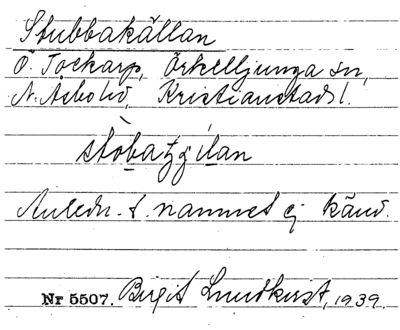 Stubbakällan
Ö. Tockarp, Örkelljunga sn,
N. Åsbo hd, Kristianstads l.
Anledn. t. namnet ej känd.
Nr 5507. Birgit Lundkvist, 1939.